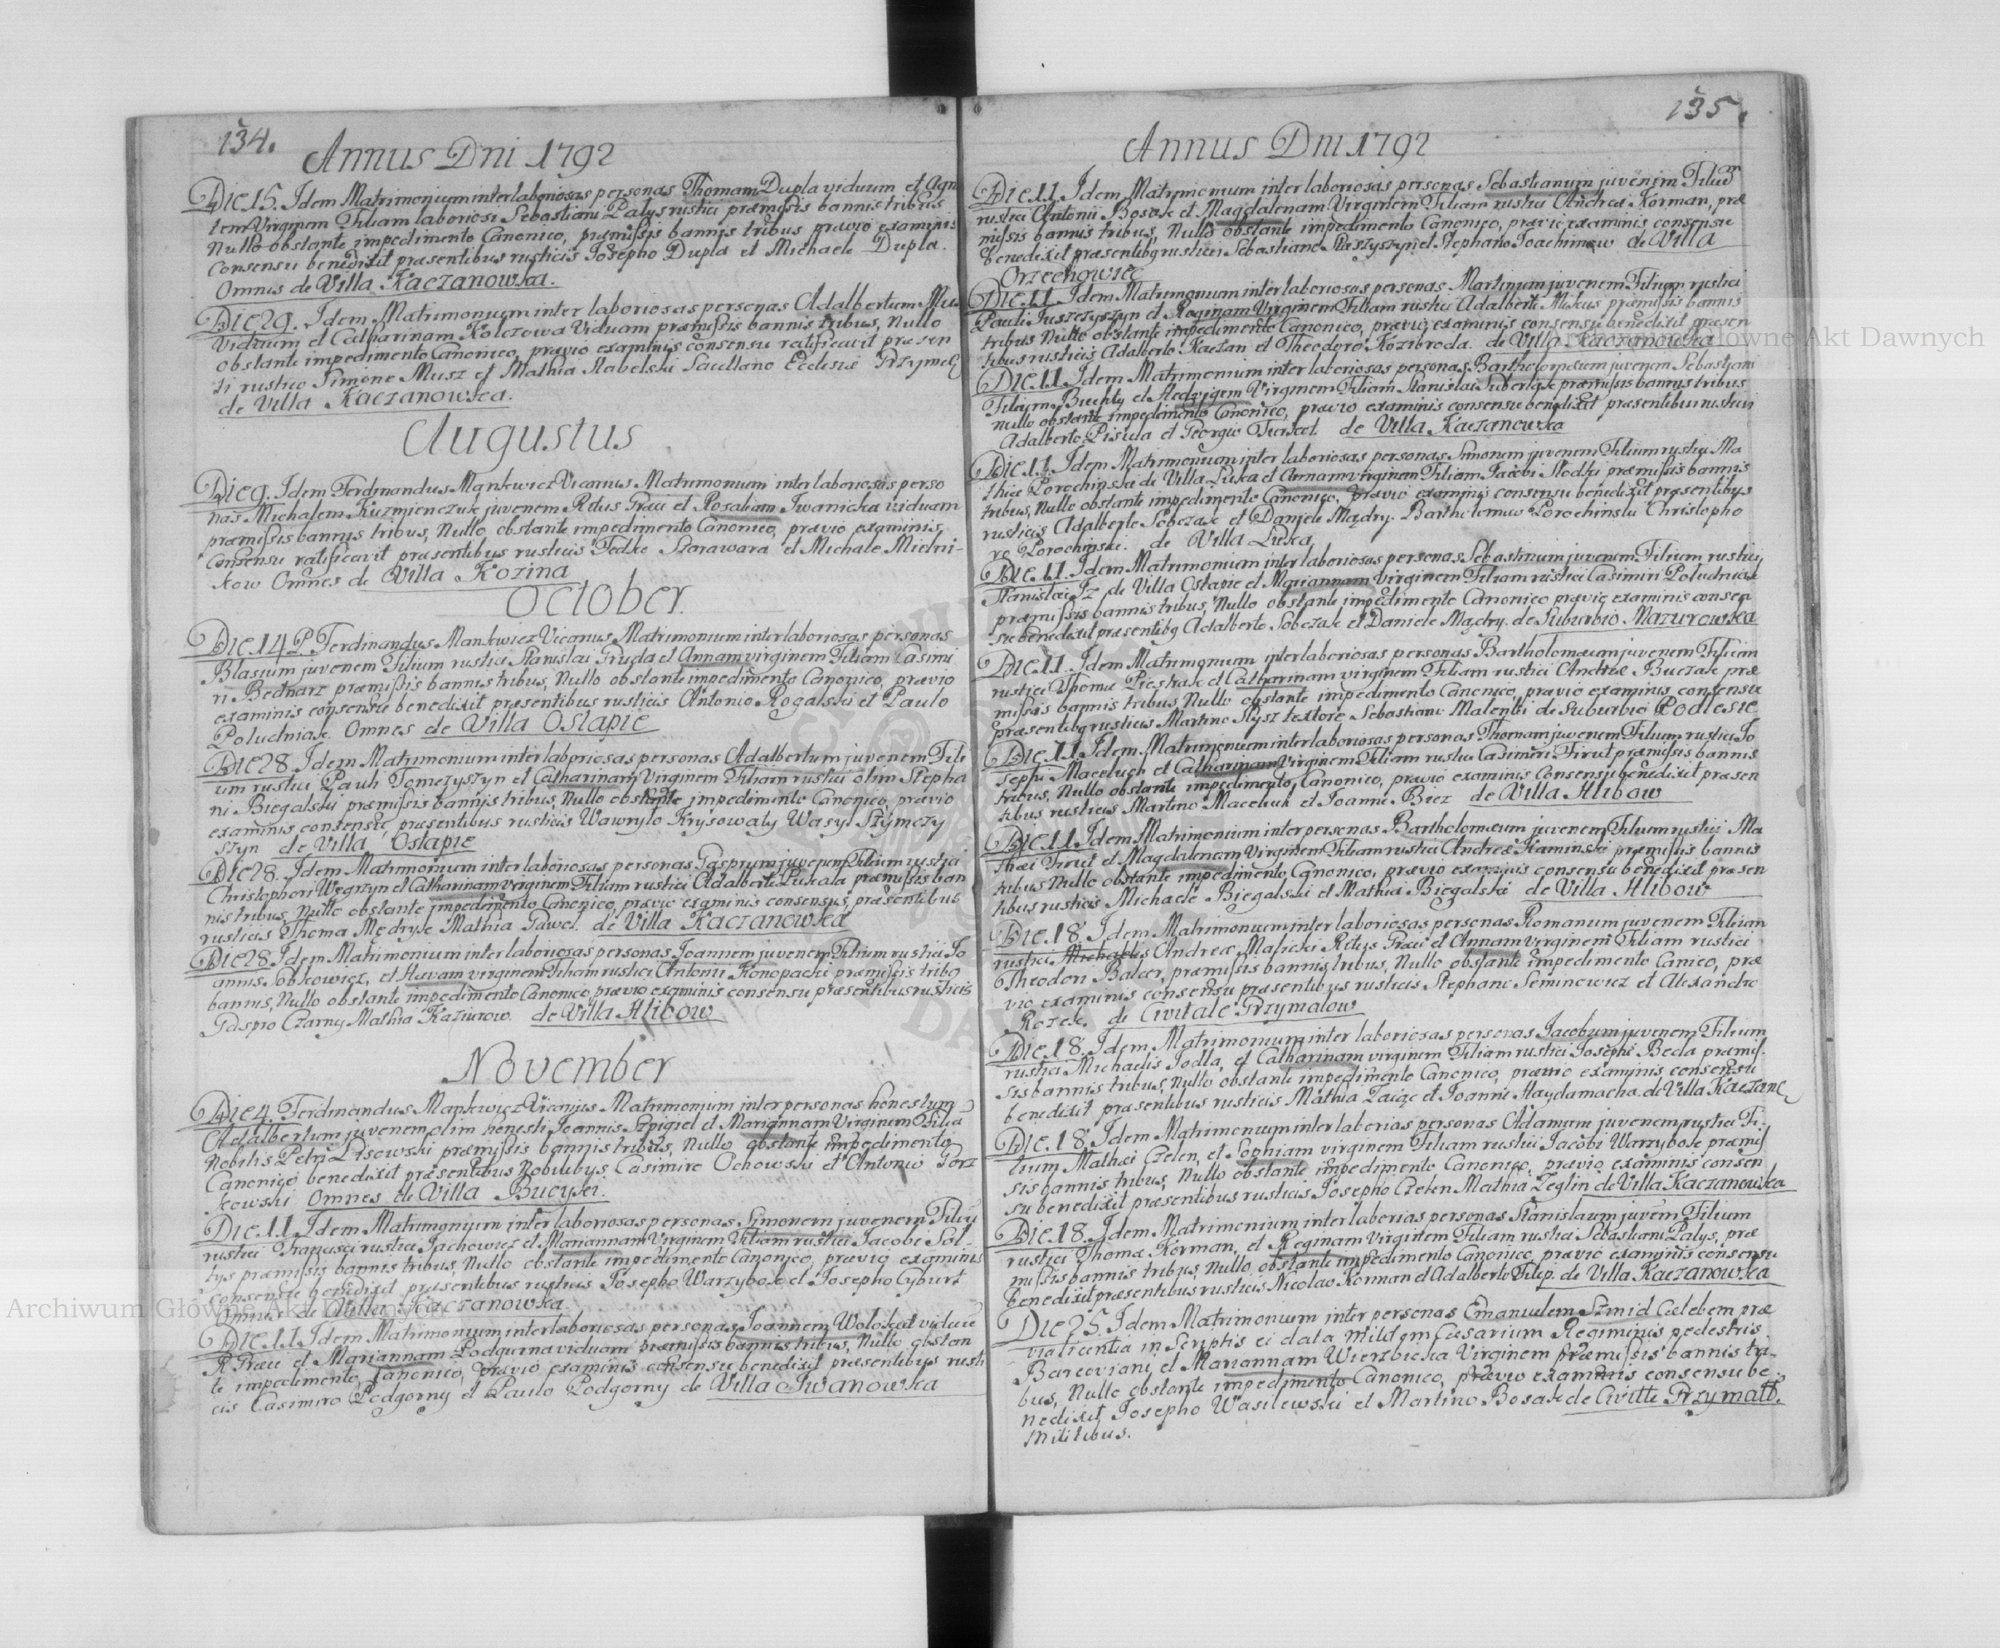 134.
Annus Dni 1792
Die 15. Idem Matrimonium inter laboriosas personas Thomam Dupla viduum et Aga
tem Virginem Filiam laboriosi Sebastiani Palys rustici præmissis bannis tribus
Nullo obstante impedimento Canonico, præmissis bannis tribus prævio examinis
Consensu benedixit præsentibus rusticis Josepho Dupla et Michaele Dupla.
Omnes de Villa Kaczanowka.
Die 29. Idem Matrimonium inter laboriosas personas Adalbertum
Viduum et Catharinam Kolczowa Viduam præmissis bannis tribus, Nullo
obstante impedimento Canonico, prævio examinis consensu ratificavit præsen
ti rustico Simone Musz et Mathia Slabelski Sacellano Ecclesiæ
de Villa Kaczanowka.
Augustus
Die 9. Idem Ferdinandus Mankwicz Vicarius Matrimonium inter laboriosis perso
nas Michalem Kuzmienczuk juvenem Retus Græci et Rosaliam Iwanicka viduam
præmissis bannys tribus, Nullo obstante impedimento Canonico, prævio examinis,
Consensu ratificavit præsentibys rusticis Fedko Szarawara et Michale Mielni-
kow Omnes de Villa Kozina
October.
Die 14 P. Ferdinandus Mankwicz Vicarius Matrimonium inter laboriosas personas
Blasium juvenem Filium rustici Stanislai Gruda et Annam virginem Filiam Casimi
ri Bednarz præmissis bannis tribus, Nullo obstante impedimento Canonico, prævio
examinis consensu benedixit præsentibus rusticis Antonio Rogalski et Paulo
Poludniak Omnes de Villa Ostapie
Die 28 Idem Matrimonium inter laboriosas personas Adalbertum juvenem Fili
um rustici Pauli Tomczyszyn et Catharinam Virginem Filiam rustici olim Stepha
ni Biegalski præmissis bannis tribus, Nullo obstante impedimento Canonico, prævio
examinis consensu præsentibus rusticis Wawrylo Krysowaty Wasyl Szymczy
szyn de Villa Ostapie
Die 28. Idem Matrimonium inter laboriosas personas Gasprum juvenem Filium rustici
Christophori Wegrzyn et Catharinam virginem Filiam rustici Adalberti Pukala præmissis ban
nis tribus, Nullo obstante impedimento Canonico, prævio examinis consensus, præsentibus
rusticis Thoma Mędryk Mathia Pawel. de Villa Kaczanowska
Die 28 Idem Matrimonium inter laboriosas personas Joannem juvenem Filium rustici Jo
annis Sobkowicz, et Hevam virginem Filiam rustici Antonii Konopacki præmissis tribo
bannis, Nullo obstante impedimento Canonico prævio examinis consensu præsentibus rusticis
Gaspro Czarny Mathia Kaziurow. de Villa Hlibow
November
Die 4. Ferdinandus Mankwicz Vicarius Matrimonium inter personas honestum
Adalbertum juvenem olim honesti Joannis Szpigiel et Mariannam Virginem Filia
Nobilis Petri Lisowski præmissis bannis tribus, Nullo obstante impedimento
Canonico benedixit præsentibus Nobilibys Casimiro Ochowski et Antonio Gorz
kowski Omnes de Villa Bucyki.
Die 11. Idem Matrimonium inter laboriosas personas Simonem juvenem Filiu
rustici Francisci rustici Jachowicz et Mariannam Virginem Filiam rustici Jacobi Sal-
tys præmissis bannis tribus, Nullo obstante impedimento Canonico, prævio examinis
consensu benedixit præsentibus rusticis Josepho Warzybok et Josepho Cybult
Omnes de Villa Kaczanowka.
Die 11. Idem Matrimonium inter laboriosas personas Joannem Woloszut viduu
R. Græci et Mariannam Podgurna viduam præmissis bannis tribus, Nullo obstan
te impedimento Canonico, prævio examinis consensu benedixit præsentibys rusti
cis Casimiro Podgorny et Paulo Podgorny de Villa Iwanowka
135.
Annus Dni 1792
Die 11. Idem Matrimonium inter laboriosas personas Sebastianum juvenem Filium
rustici Antonii Bosak et Magdalenam Virginem Filiam rustici Andreæ Korman, præ
missis bannis tribus, Nullo obstante impedimento Canonico, prævio examinis consensu
benedixit præsentibq rusticis Sebastiano et Stephano Joachimow de Villa
Orzechowiec
Die 11. Idem Matrimonium inter laboriosas personas Martinum juvenem Filium rustici
Pauli Juszczyszyn et Reginam Virginem Filiam rustici Adalberti Mikus præmissis bannis
tribus Nullo obstante impedimento Canonico, prævio examinis consensu benedixit præsen
tibus rusticis Adalberto Kaczan et Theodoro Kozibroda. de Villa Kaczanowka
Die 11. Idem Matrimonium inter laboriosas personas Bartholomæum juvenem Sebastiani
Filium Buchty et Hedvigem Virginem Filiam Stanislai Suberlak præmissis bannys tribus
nullo obstante impedimento Canonico, prævio examinis consensu benedixit præsentibus rusticis
Adalberto Pisula et Georgio de Villa Kaczanowka
Die 11. Idem Matrimonium inter laboriosas personas Simonem juvenem Filium rustici Ma
thiæ Porochinski de Villa Luka et Annam virginem Filiam Jacobi Slodki præmissis bannis
tribus, Nullo obstante impedimento Canonico, prævio examinis consensu benedixit præsentibys
rusticis Adalberto Sobczak et Daniele Mądry. Bartholomeo Porochinski Christopho
ro Porochinski. de Villa Luka
Die 11. Idem Matrimonium inter laboriosas personas Sebastinum juvenem Filium rustici
Stanislai Iz de Villa Ostapie et Mariannam virginem Filiam rustici Casimiri Poludniak
præmissis bannis tribus, Nullo obstante impedimento Canonico prævio examinis consen
su benedixit præsentibq Adalberto Sobczak et Daniele Mądry. de Suburbio Mazurowka
Die 11. Idem Matrimonium inter laboriosas personas Bartholomæum juvenem Filium
rustici Thomæ Piestrak et Catharinam virginem Filiam rustici Andreæ Buczak præ
missis bannis tribus Nullo obstante impedimento Canonico, prævio examinis consensu
præsentibq rusticis Martino Slysz textore Sebastiano Malenki de Suburbio Podlesie
Die 11. Idem Matrimonium inter laboriosas personas Thomam juvenem Filium rustici Jo
sephi Maceluch et Catharinam Virginem Filiam rustici Casimiri Firut præmissis bannis
tribus, Nullo obstante impedimento Canonico, prævio examinis Consensu benedixit præsen
tibus rusticis Martino Maceluk et Joanne Biez de Villa Hlibow
Die 11. Idem Matrimonium inter personas Bartholomæum juvenem Filium rustici Ma
thæi Firut et Magdalenam Virginem Filiam rustici Andreæ Kaminski præmissis bannis
tribus Nullo obstante impedimento Canonico, prævio examinis consensu benedixit præsen
tibus rusticis Michaele Biegalski et Mathia Biegalski de Villa Hlibow
Die 18. Idem Matrimonium inter laboriosas personas Romanum juvenem Filium
rustici Michaelis Andreæ Malicki Retus Græci et Annam virginem Filiam rustici
Theodori Balcer, præmissis bannis, tribus, Nullo obstante impedimento Canico, præ
vio examinis consensu præsentibys rusticis Stephano Seminowicz et Alexandro
Rozek. de Civitate Grzymalow
Die 18. Idem Matrimonium inter laboriosas personas Jacobum juvenem Filium
rustici Michaelis Jodla, et Catharinam virginem Filiam rustici Josephi Beda præmis-
sis bannis tribus, Nullo obstante impedimento Canonico, prævio examinis consensu
benedixit præsentibus rusticis Mathia Zaiąc et Joanne Haydamacha. de Villa Kaczano
Die 18. Idem Matrimonium inter laborias personas Adamum juvenem rustici Fi-
lium Mathæi Czelen, et Sophiam virginem Filiam rustici Jacobi Warzybok præmis
sis bannis tribus, Nullo obstante impedimento Canonico, prævio examinis consen
su benedixit præsentibus rusticis Josepho Czelen Mathia Zeglin de Villa Kaczanowka
Die 18. Idem Matrimonium inter laborias personas Stanislaum juvem Filium
rustici Thomæ Korman, et Reginam Virginem Filiam rustici Sebastiani Palys, præ
missis bannis tribus, Nullo obstante impedimento Canonico, prævio examinis consensu
benedixit præsentibus rusticis Nicolao Korman et Adalberto Filip. de Villa Kaczanowka
Die 25. Idem Matrimonium inter personas Emanuelem Szmid Cælebem præ
via licentia in Scriptis ei data Militem Cæsarium Regiminis pedestris
et Mariannam Wierzbicka Virginem præmissis bannis tri-
bus, Nullo obstante impedimento Canonico, prævio examinis consensu be
nedixit Josepho Wasilewski et Martino Bosak de Civitte Grzymałł.
Militibus.
Archiwum Główne Akt Dawnych
Główne Akt Dawnych